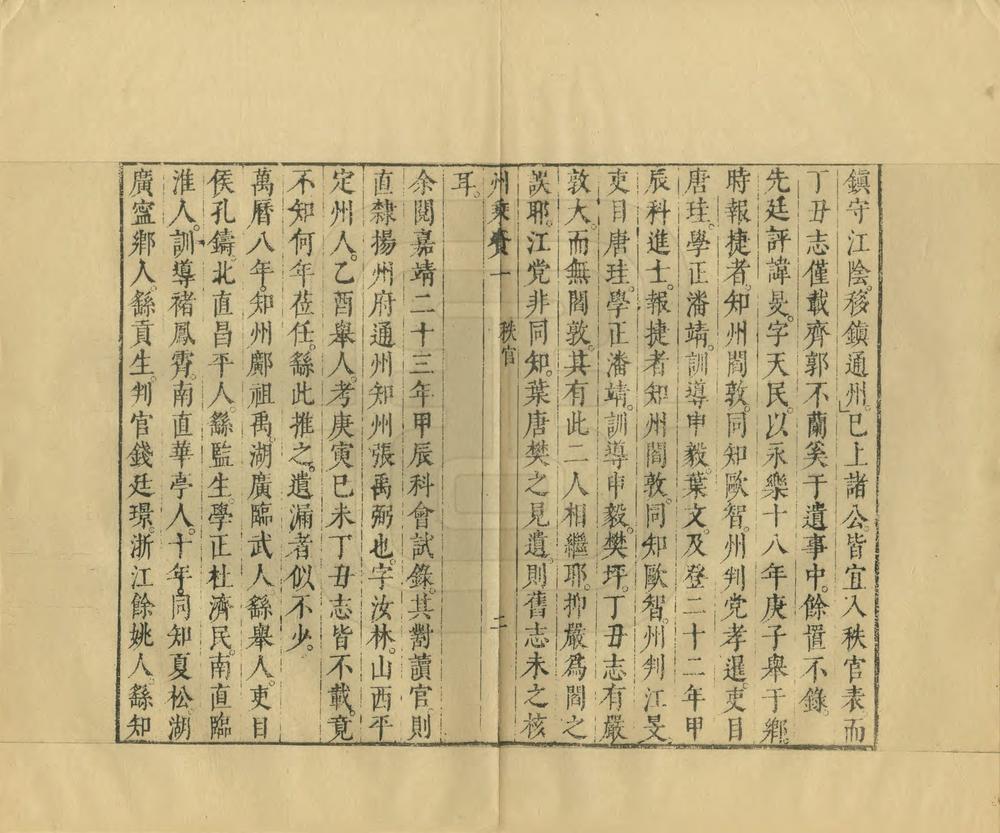 鎮守江陰。移鎮通州」已上諸公。皆宜入秩官表而
丁丑志僅載齊郭不蘭奚于遺事中。餘置不錄。
先廷評諱旻。字天民。以永樂十八年庚子舉于鄉。
時報捷者。知州閻敦。同知歐智。州判党孝暹。吏目
唐珪。學正潘靖。訓導申毅。葉文。及登二十二年甲
辰科進士。報捷者知州閻敦。同知歐智。州判江旻
吏目唐珪。學正潘靖。訓導申毅。樊坪。丁丑志有嚴
敦大。而無閻敦。其有此二人相繼耶。抑嚴爲閻之
誤耶。江党非同知。葉唐樊之見遺。則舊志未之核
州乘資一 秩官 二
耳。
余閱嘉靖二十三年甲辰科會試錄。其對讀官則
直隸揚州府通州知州張禹弼也。字汝林。山西平
定州人。乙酉舉人。考庚寅巳未丁丑志皆不載。竟
不知何年莅任。繇此推之。遺漏者似不少。
萬曆八年。知州鄺祖禹。湖廣臨武人繇舉人。吏目
侯孔鑄。北直昌平人。繇監生。學正杜濟民。南直臨
淮人。訓導褚鳳霄。南直華亭人。十年。同知夏松湖
廣寧鄉人。繇貢生。判官錢廷璟。浙江餘姚人。繇知